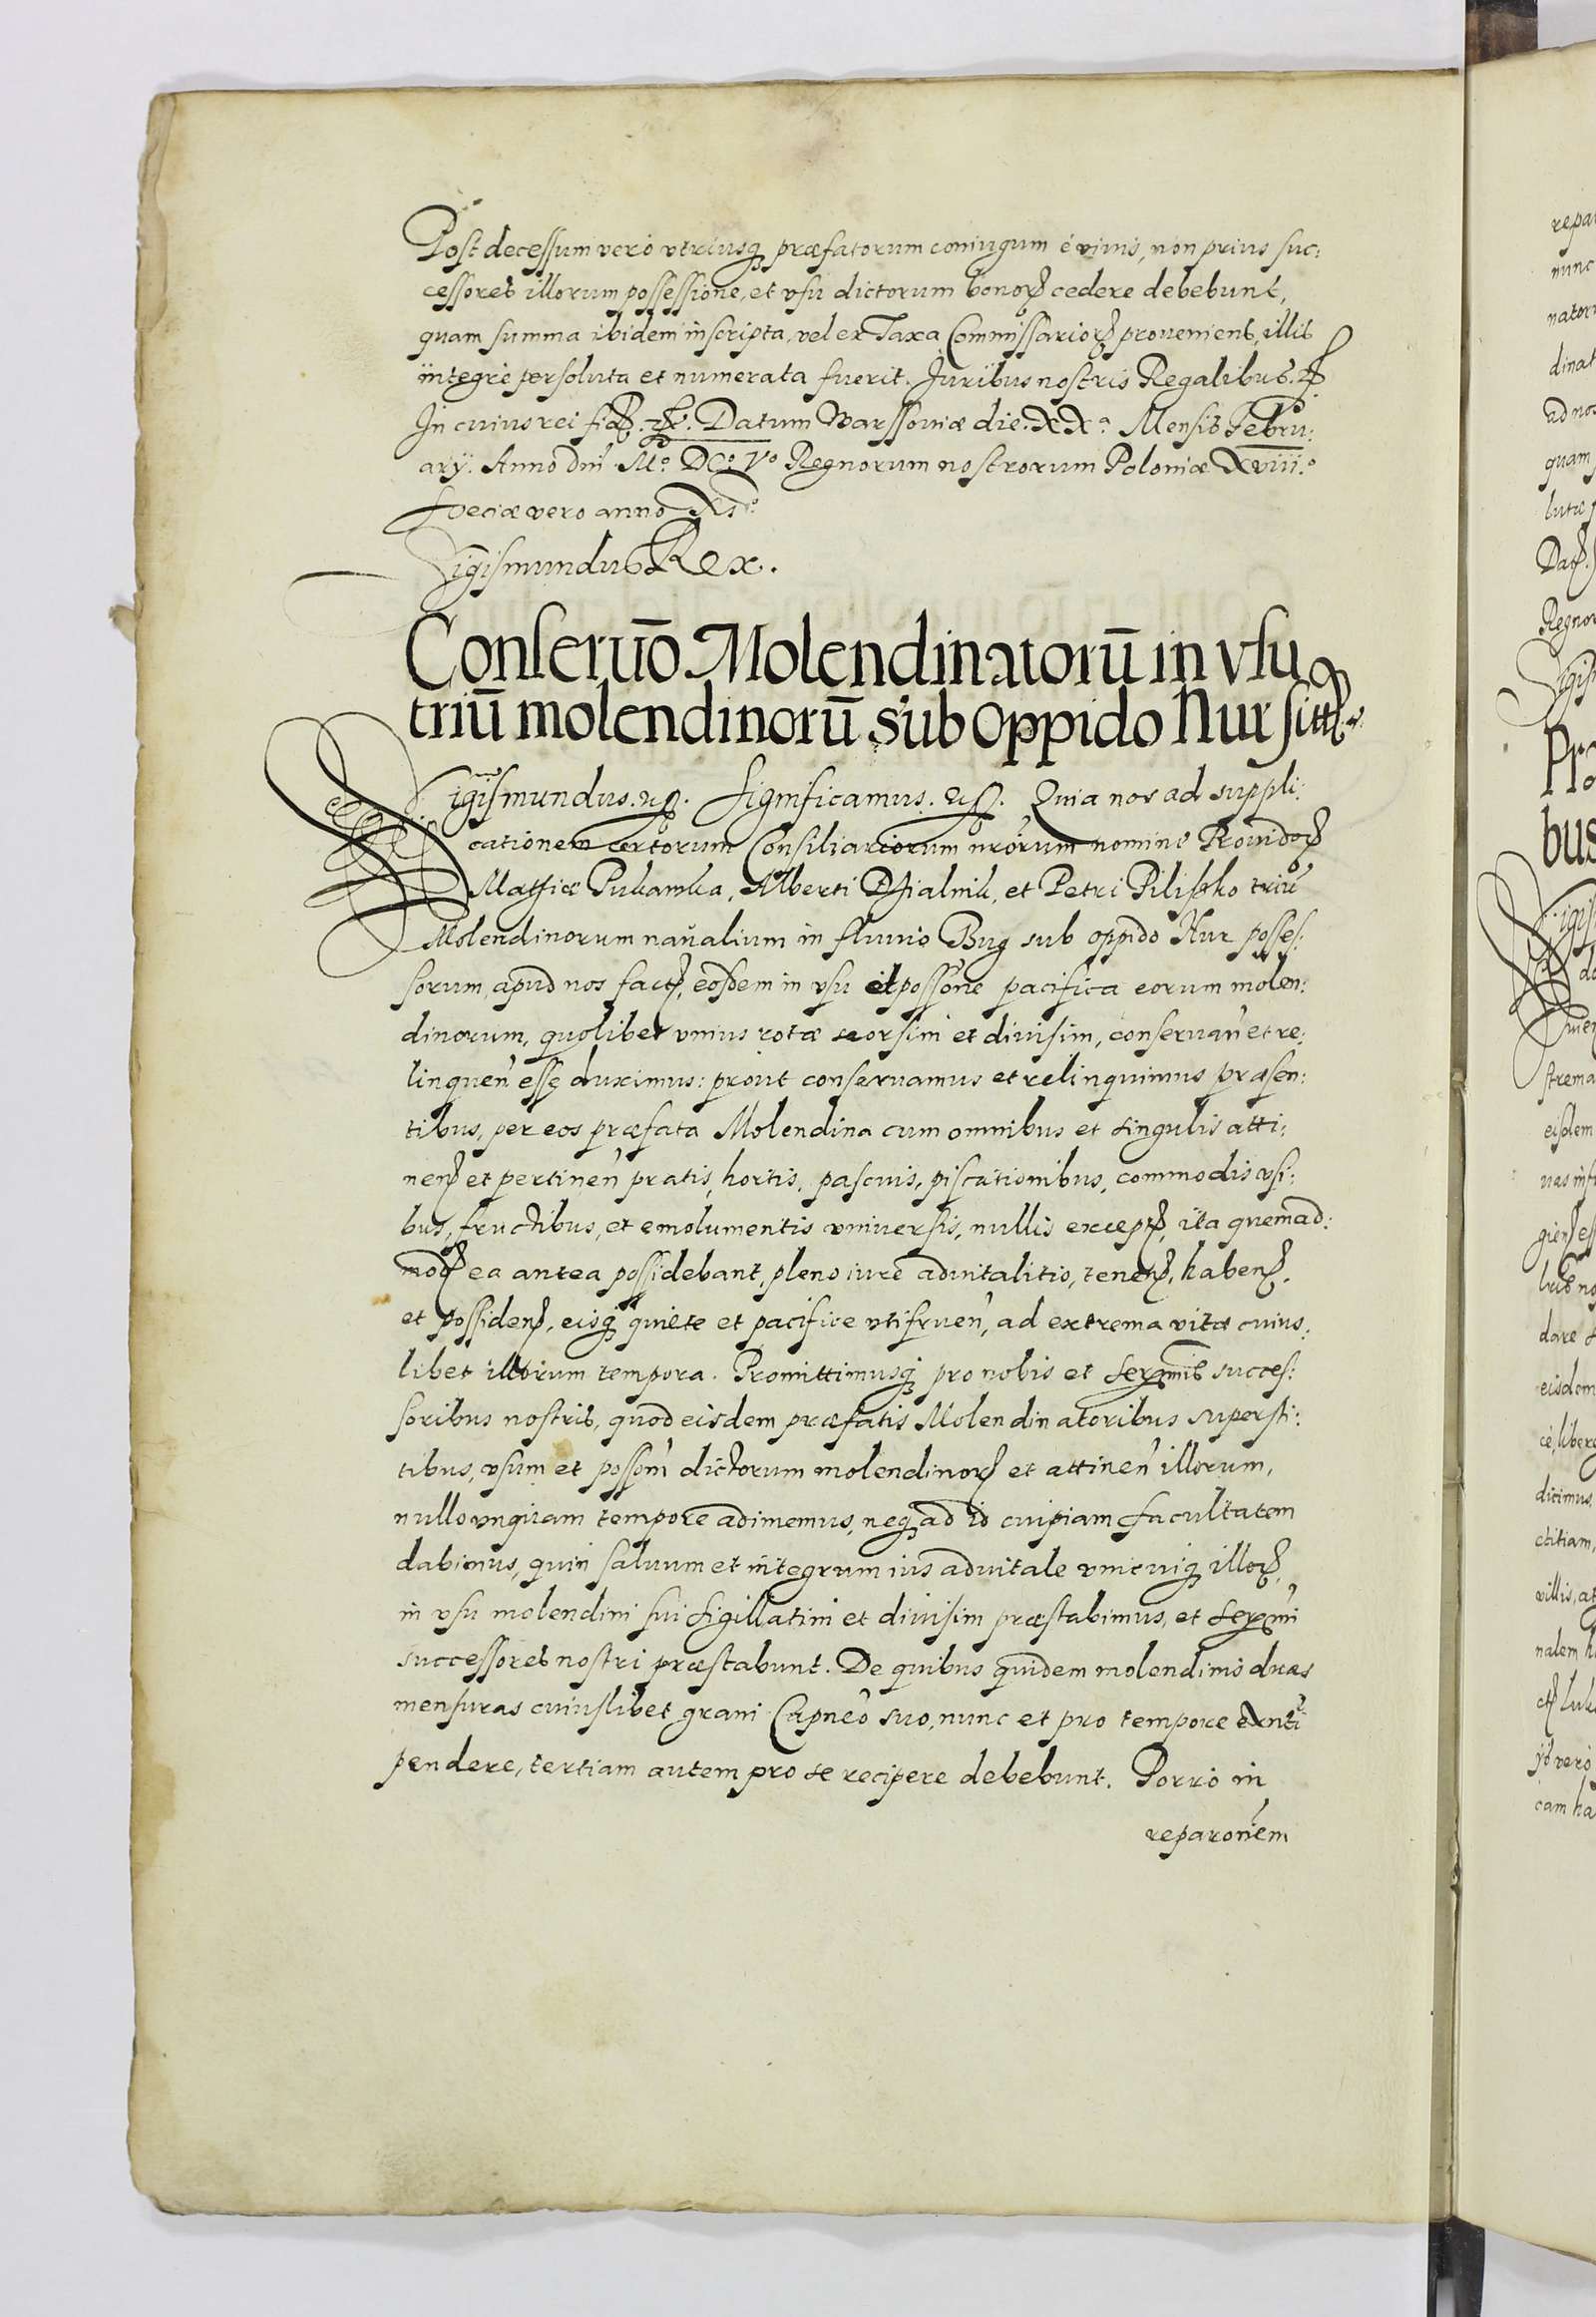 Post decessum vero vtriusq; præfatorum coniugum è viuis, non prius suc:
cessores illorum possessione, et vsu dictorum bonoꝝ cedere debebunt,
quam summa ibidem inscripta, vel ex Taxa Commissarioꝝ proueniens, illis
integrè persoluta et numerata fuerit. Juribus nostris Regalibus. &
In cuius rei fid. &. Datum Warssouiæ die. XXª. Mensis Febru:
arÿ. Anno dnĩ. Mº. DCº. Vº Regnorum nostrorum Poloniæ XVIII.º
Sueciæ vero anno XIº
Sigismundus Rex.
Conseruõ Molendinatorũ in vsu
triũ molendinorũ sub oppido Nur sitt.
Sigismundus. &. Significamus. &. Quia nos ad suppli:
cationem certorum Consiliariorum nrõrum nomine Prouidoꝝ
Matthiæ Alberti et Petri triũ
Molendinorum naualium in fluuio Bug sub oppido Nur posses:
sorum, apud nos fact, eosdem in vsu et possõne pacifica eorum molen:
dinorum, quolibet vnius rotæ seorsim et diuisim, conseruañ et re:
linqueñ esse duximus: prout conseruamus et relinquimus præsen:
tibus, per eos præfata Molendina cum omnibus et singulis atti:
neñ et pertineñ pratis, hortis, pascuis, piscationibus, commodis vsi:
bus, fructibus, et emolumentis vniuersis, nullis except, ita quemad:
mod ea antea possidebant, pleno iure aduitalitio, teneñ, habeñ,
et possideñ, eisq; quiete et pacifice vtifrueñ, ad extrema vitæ cuius:
libet illorum tempora. Promittimusq; pro nobis et Serẽmis succes:
soribus nostris, quod eisdem præfatis Molendinatoribus supersti:
tibus, vsum et possoñm dictorum molendinoꝝ et attineñ illorum,
nullo vnquam tempore adimemus, neq; ad id cuipiam facultatem
dabimus, quin saluum et integrum ius aduitale vnicuiq; illoꝝ,
in vsu molendini sui sigillatim et diuisim præstabimus, et Serẽmi
successores nostri præstabunt. De quibus quidem molendinis duas
mensuras cuiuslibet grani Capneõ suo, nunc et pro tempore exñti
pendere, tertiam autem pro se recipere debebunt. Porro in
reparoñem